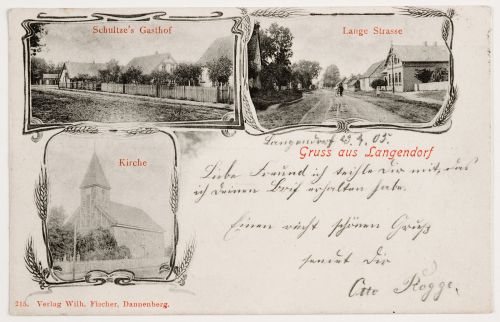 Schultze's Gasthof
Lange Strasse
Langendorf 23.4.05.
Gruss aus Langendorf
Kirche
Liebe Freund ich teihle Dir mit, das
ich deinen Brif erhalten habe.
Einen recht schönen Gruß
sendet Dir
Otto Rogge.
215. Verlag Wilh. Fischer, Dannenberg.